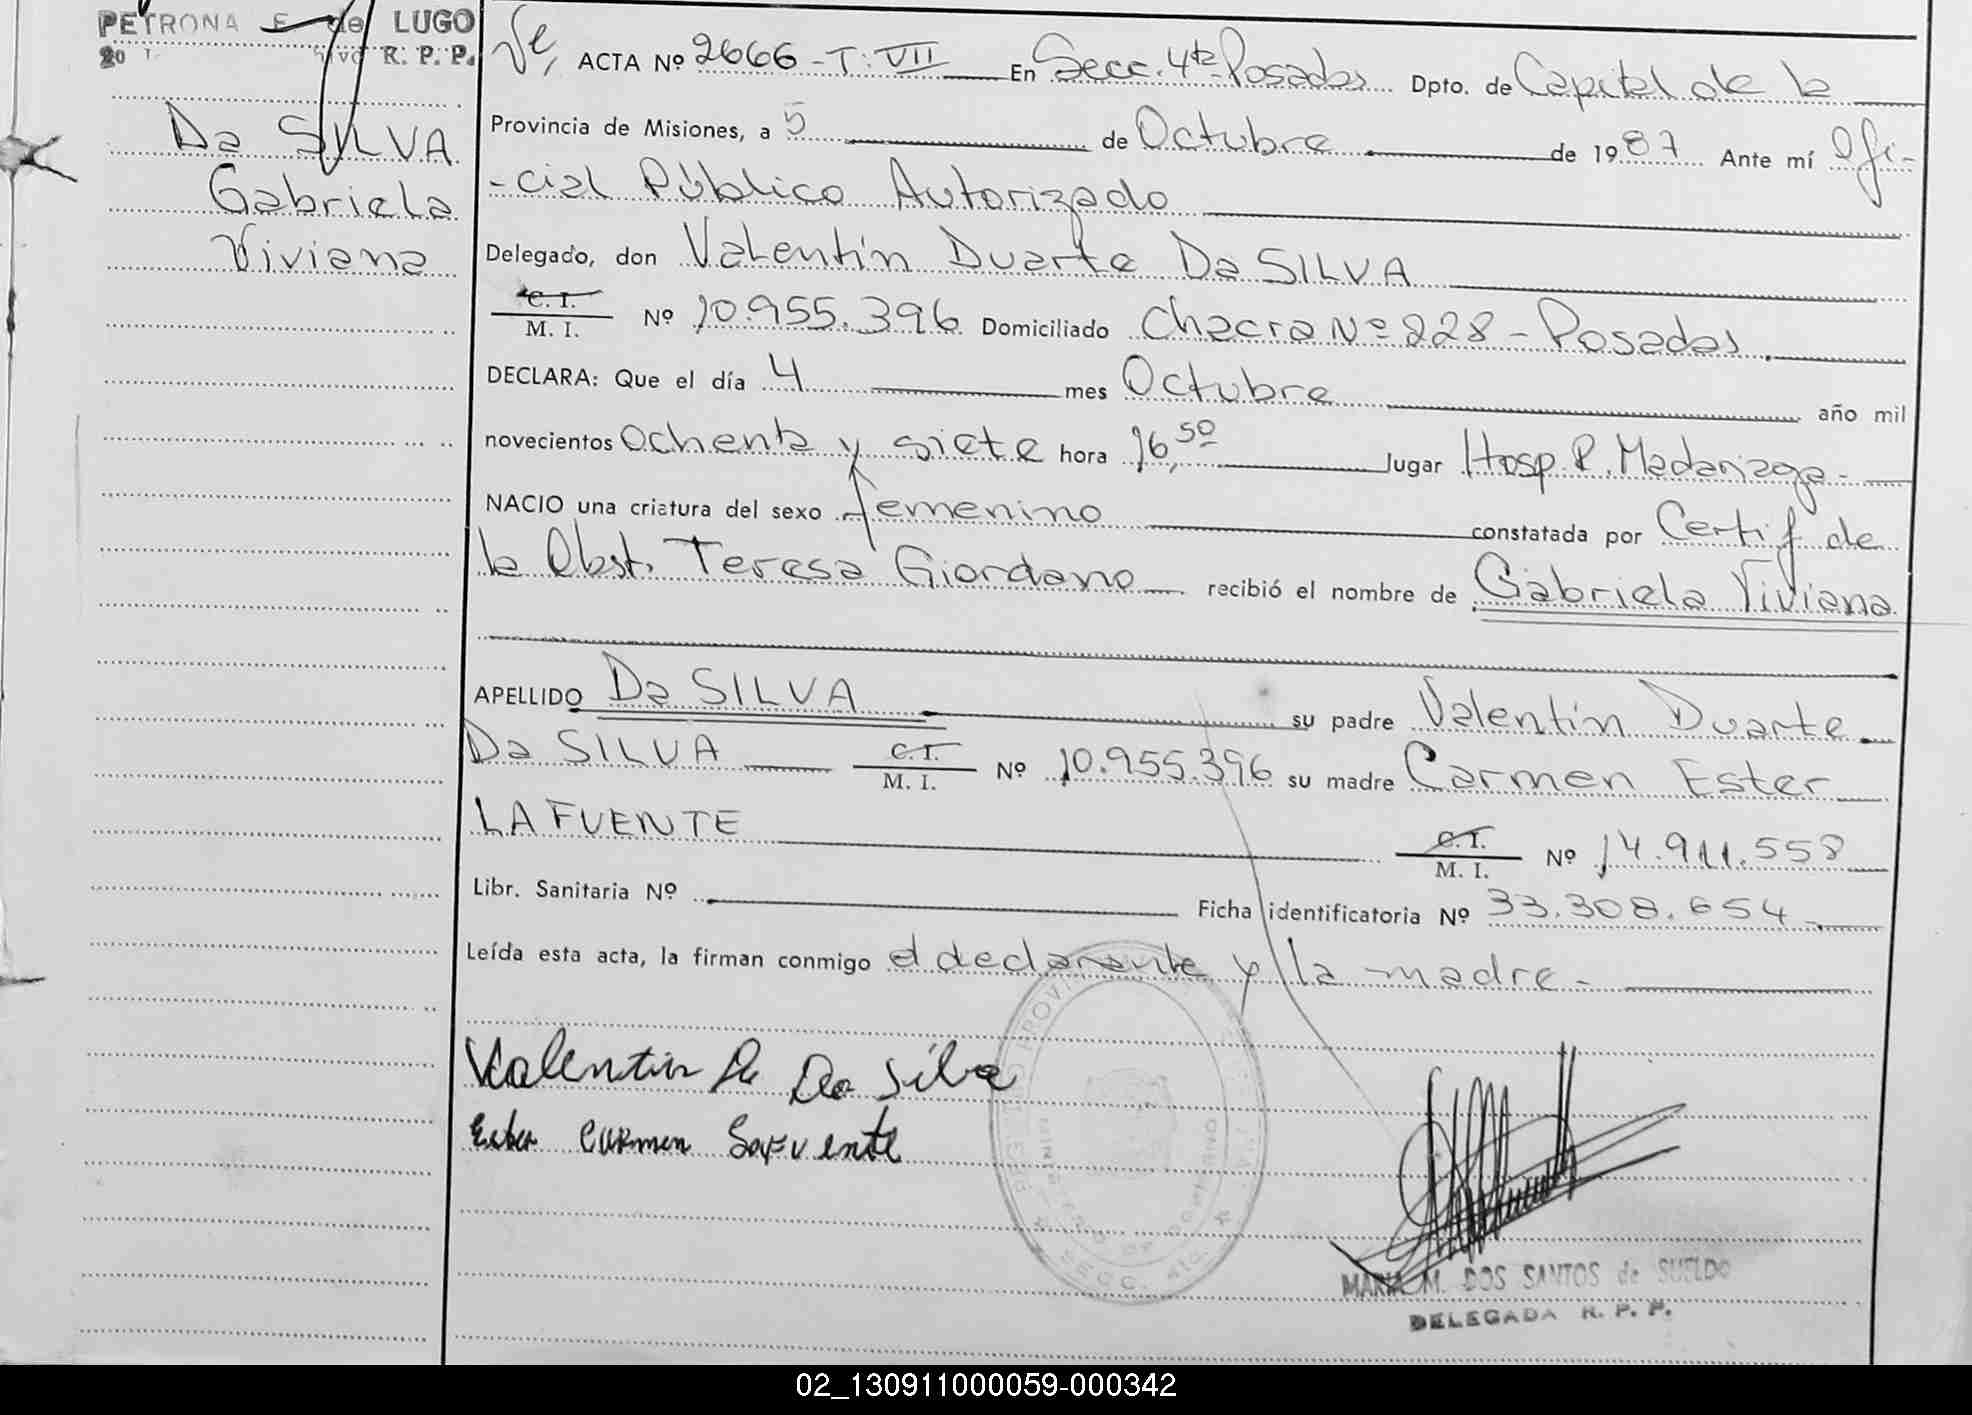 PETRONA E. de LUGO
R. P. P.
Da SILVA
Gabriela
Viviana
ACTA Nº 2666 - T: VII En Secc. 4ta Posadas Dpto. de Capital de la
Provincia de Misiones, a 5 de Octubre de 1987 Ante mí Ofi-
-cial Público Autorizado
Delegado, don Valentín Duarte Da SILVA
C. I.
M. I. Nº 10.955.396 Domiciliado Chacra Nº 228 - Posadas
DECLARA: Que el día 4 mes Octubre año mil
novecientos ochenta y siete hora 16,50 lugar Hosp. R. Madariaga -
NACIO una criatura del sexo femenino constatada por Certif de
la Obst. Teresa Giordano recibió el nombre de Gabriela Viviana
APELLIDO Da SILVA su padre Valentín Duarte
Da SILVA C. I. M. I. Nº 10.955.396 su madre Carmen Ester
LAFUENTE C. I. M. I. Nº 14.911.558
Libr. Sanitaria Nº Ficha identificatoria Nº 33.308.654
Leída esta acta, la firman conmigo el declarante y la madre -
Valentin D. Da Silva
Ester Carmen Lafuente
MARIA M. DOS SANTOS de SUELDO
DELEGADA R. P. P.
02_130911000059-000342